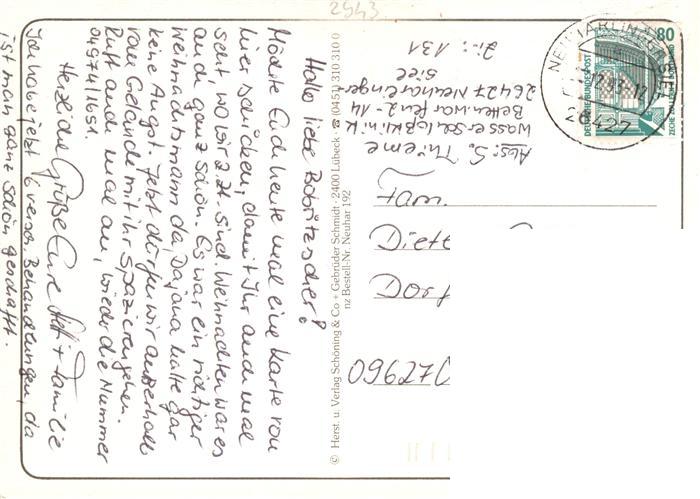 2943
Hallo liebe Bobritzscher!
Möchte Euch heute mal eine Karte von
hier schicken, damit Ihr auch mal
seht wo wir z.Zt. sind. Weihnachten war es
auch ganz schön. Es war ein richtiger
Weihnachtsmann da Dajana hatte gar
keine Angst. Jetzt dürfen wir außerhalb
vom Gelände mit ihr spazierengehen.
Ruft auch mal an, wieder die Nummer
04974/1651.
Herzliche Grüße Eure + Familie
Ich habe jetzt 6 versch. Behandlungen, da
ist man ganz schön geschafft.
© Herst. u. Verlag Schöning & Co + Gebrüder Schmidt · 2400 Lübeck · ☎ (0451) 310 310 0
nz Bestell-Nr. Neuhar 192
Abs: S. Thieme
Wasserschloßklinik
Bettenwarfen 2-14
26427 Neuharlinger-
siel
Zi.: 131
80
DEUTSCHE BUNDESPOST
ZECHE ZOLLERN II DORTMUND
NEUHARLINGERSIEL
26427
Fam.
Diete
Dorf
09627